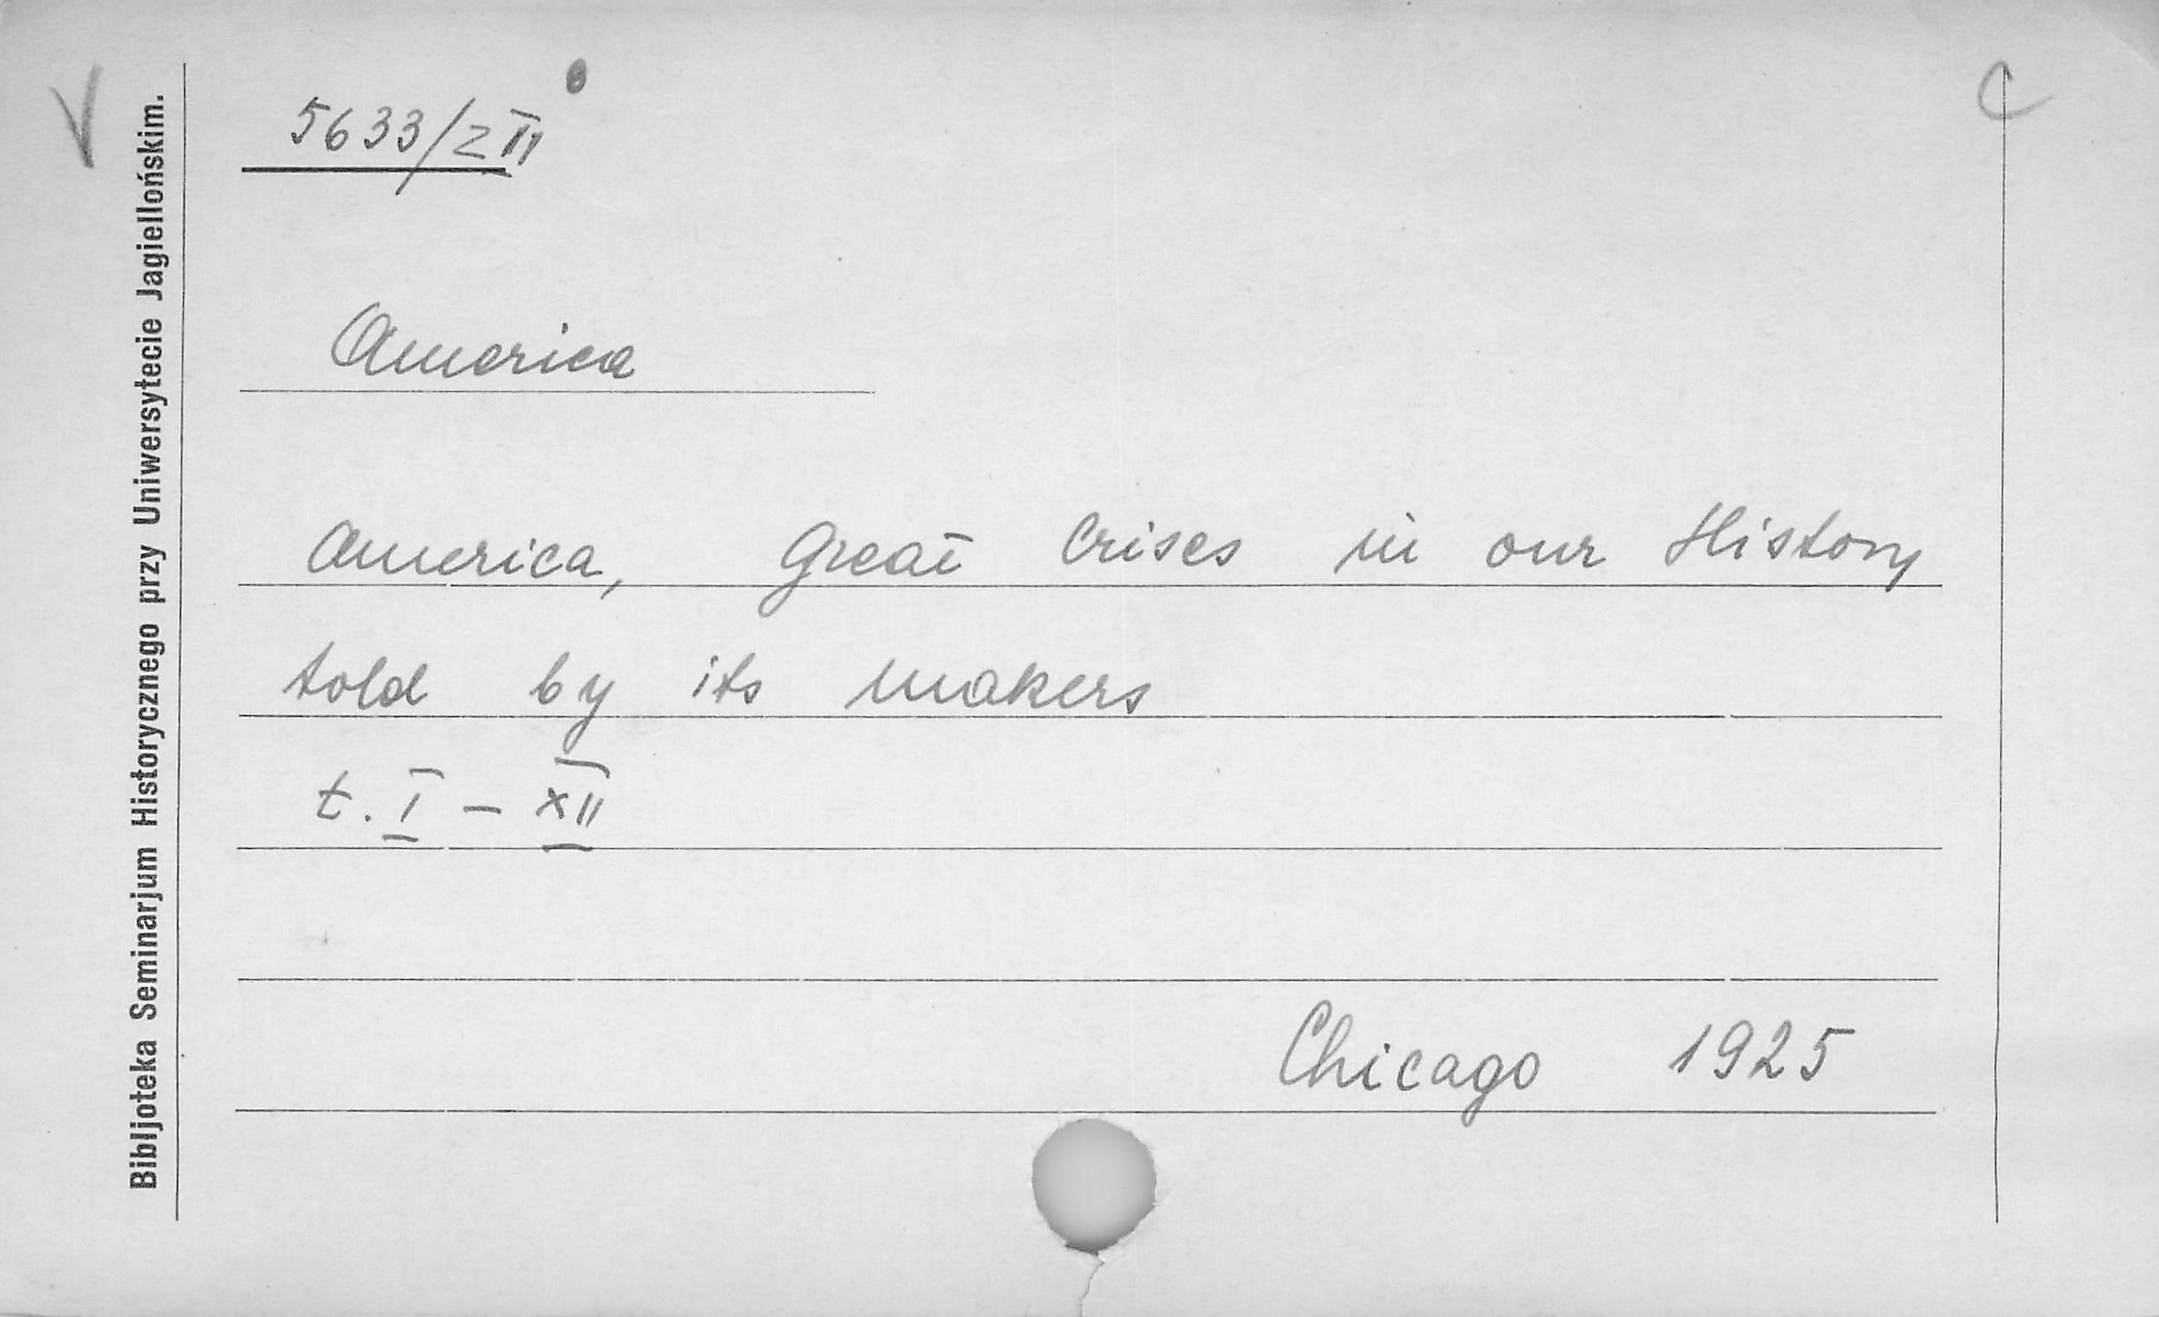 V
C
5633/Z II
America
America, Great Crises in our History
told by its makers
t. I – XII
Chicago 1925
Bibljoteka Seminarjum Historycznego przy Uniwersytecie Jagiellońskim.